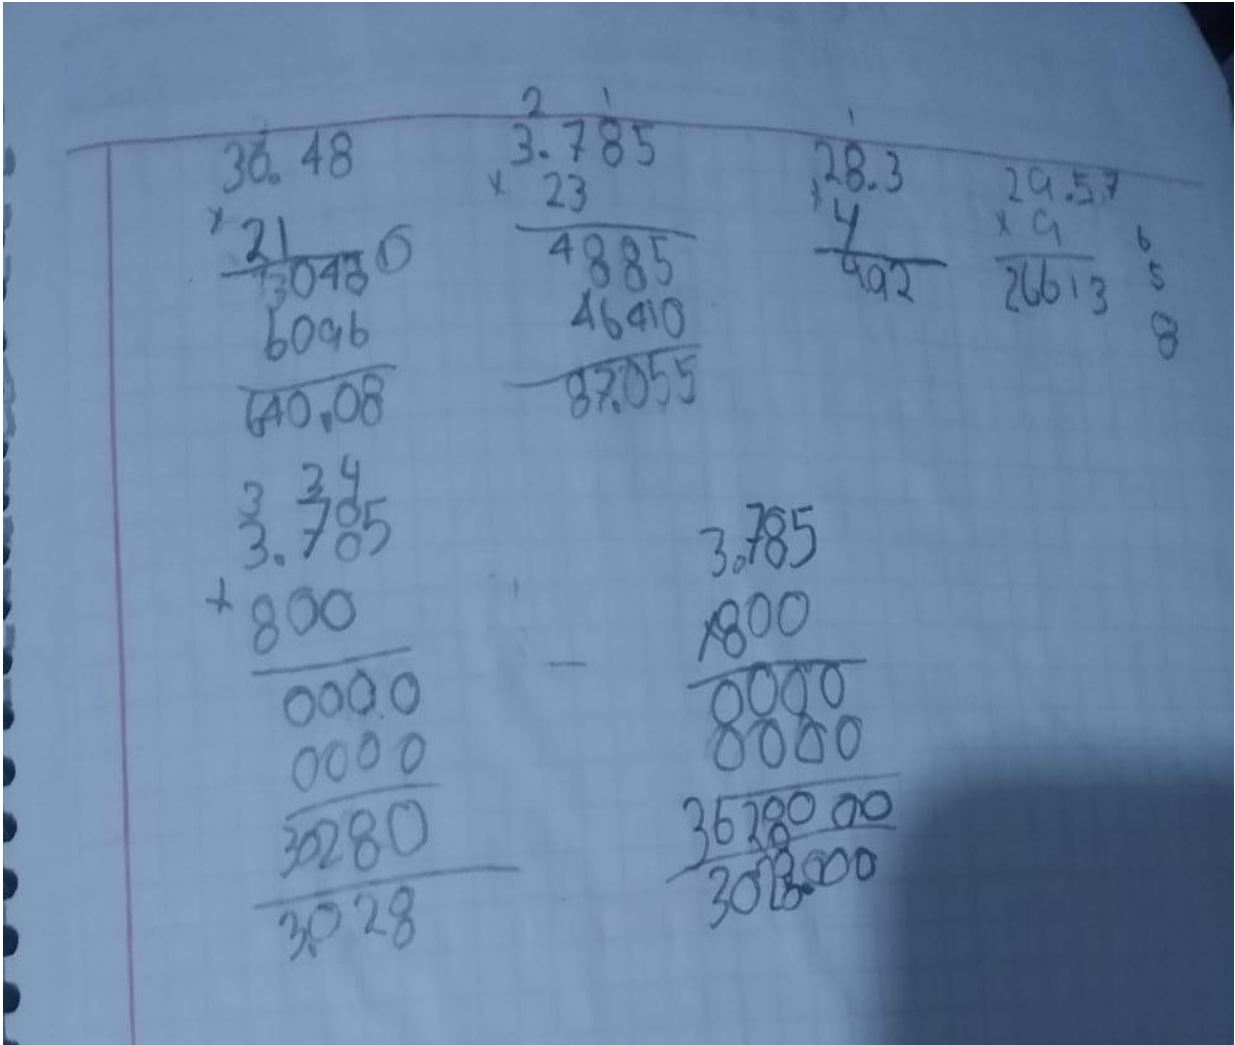 30.48
x 21
3048
6096
640.08
2 1
3.785
x 23
4885
46410
87.055
1
28.3
x 4
492
29.57
x 9
26613
6
5
8
3 3 4
3.785
x 800
0000
0000
30280
3.028
3.785
x800
0000
0000
3628000
3028.000